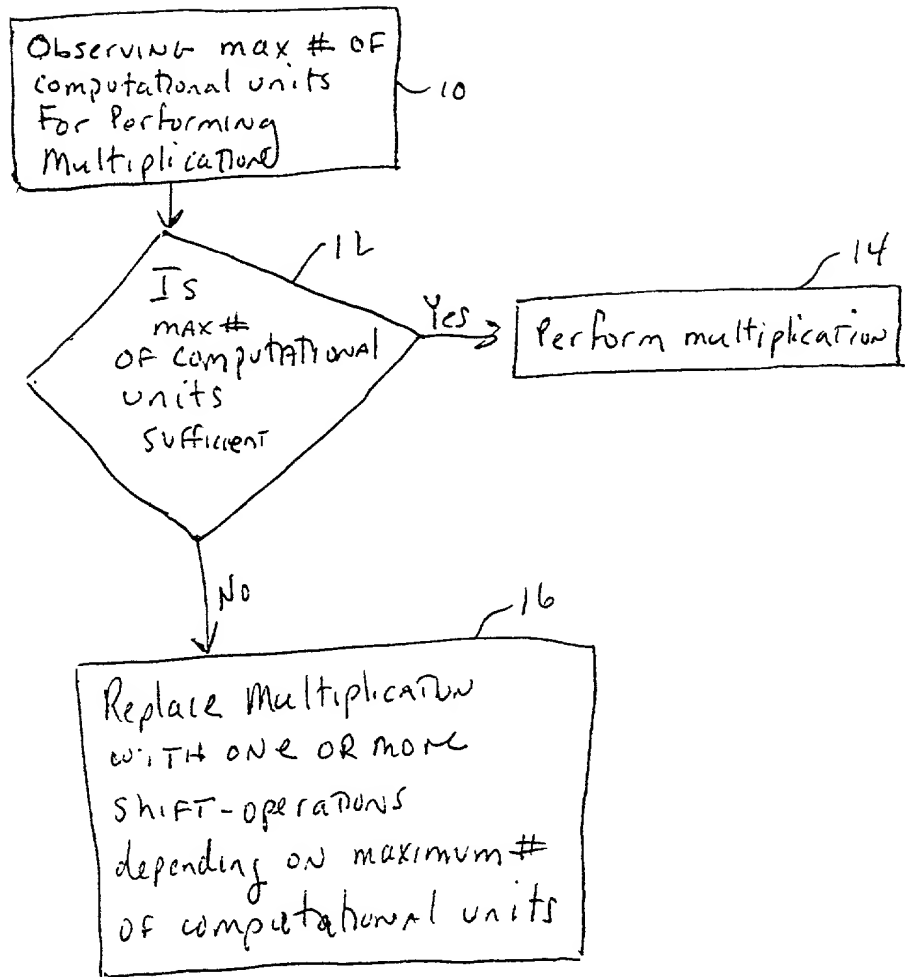 Observing max # OF
computational units
For Performing
Multiplications
10
12
Is
max #
OF computational
units
sufficient
Yes
14
Perform multiplication
No
16
Replace Multiplication
with one or more
shift-operations
depending on maximum #
of computational units